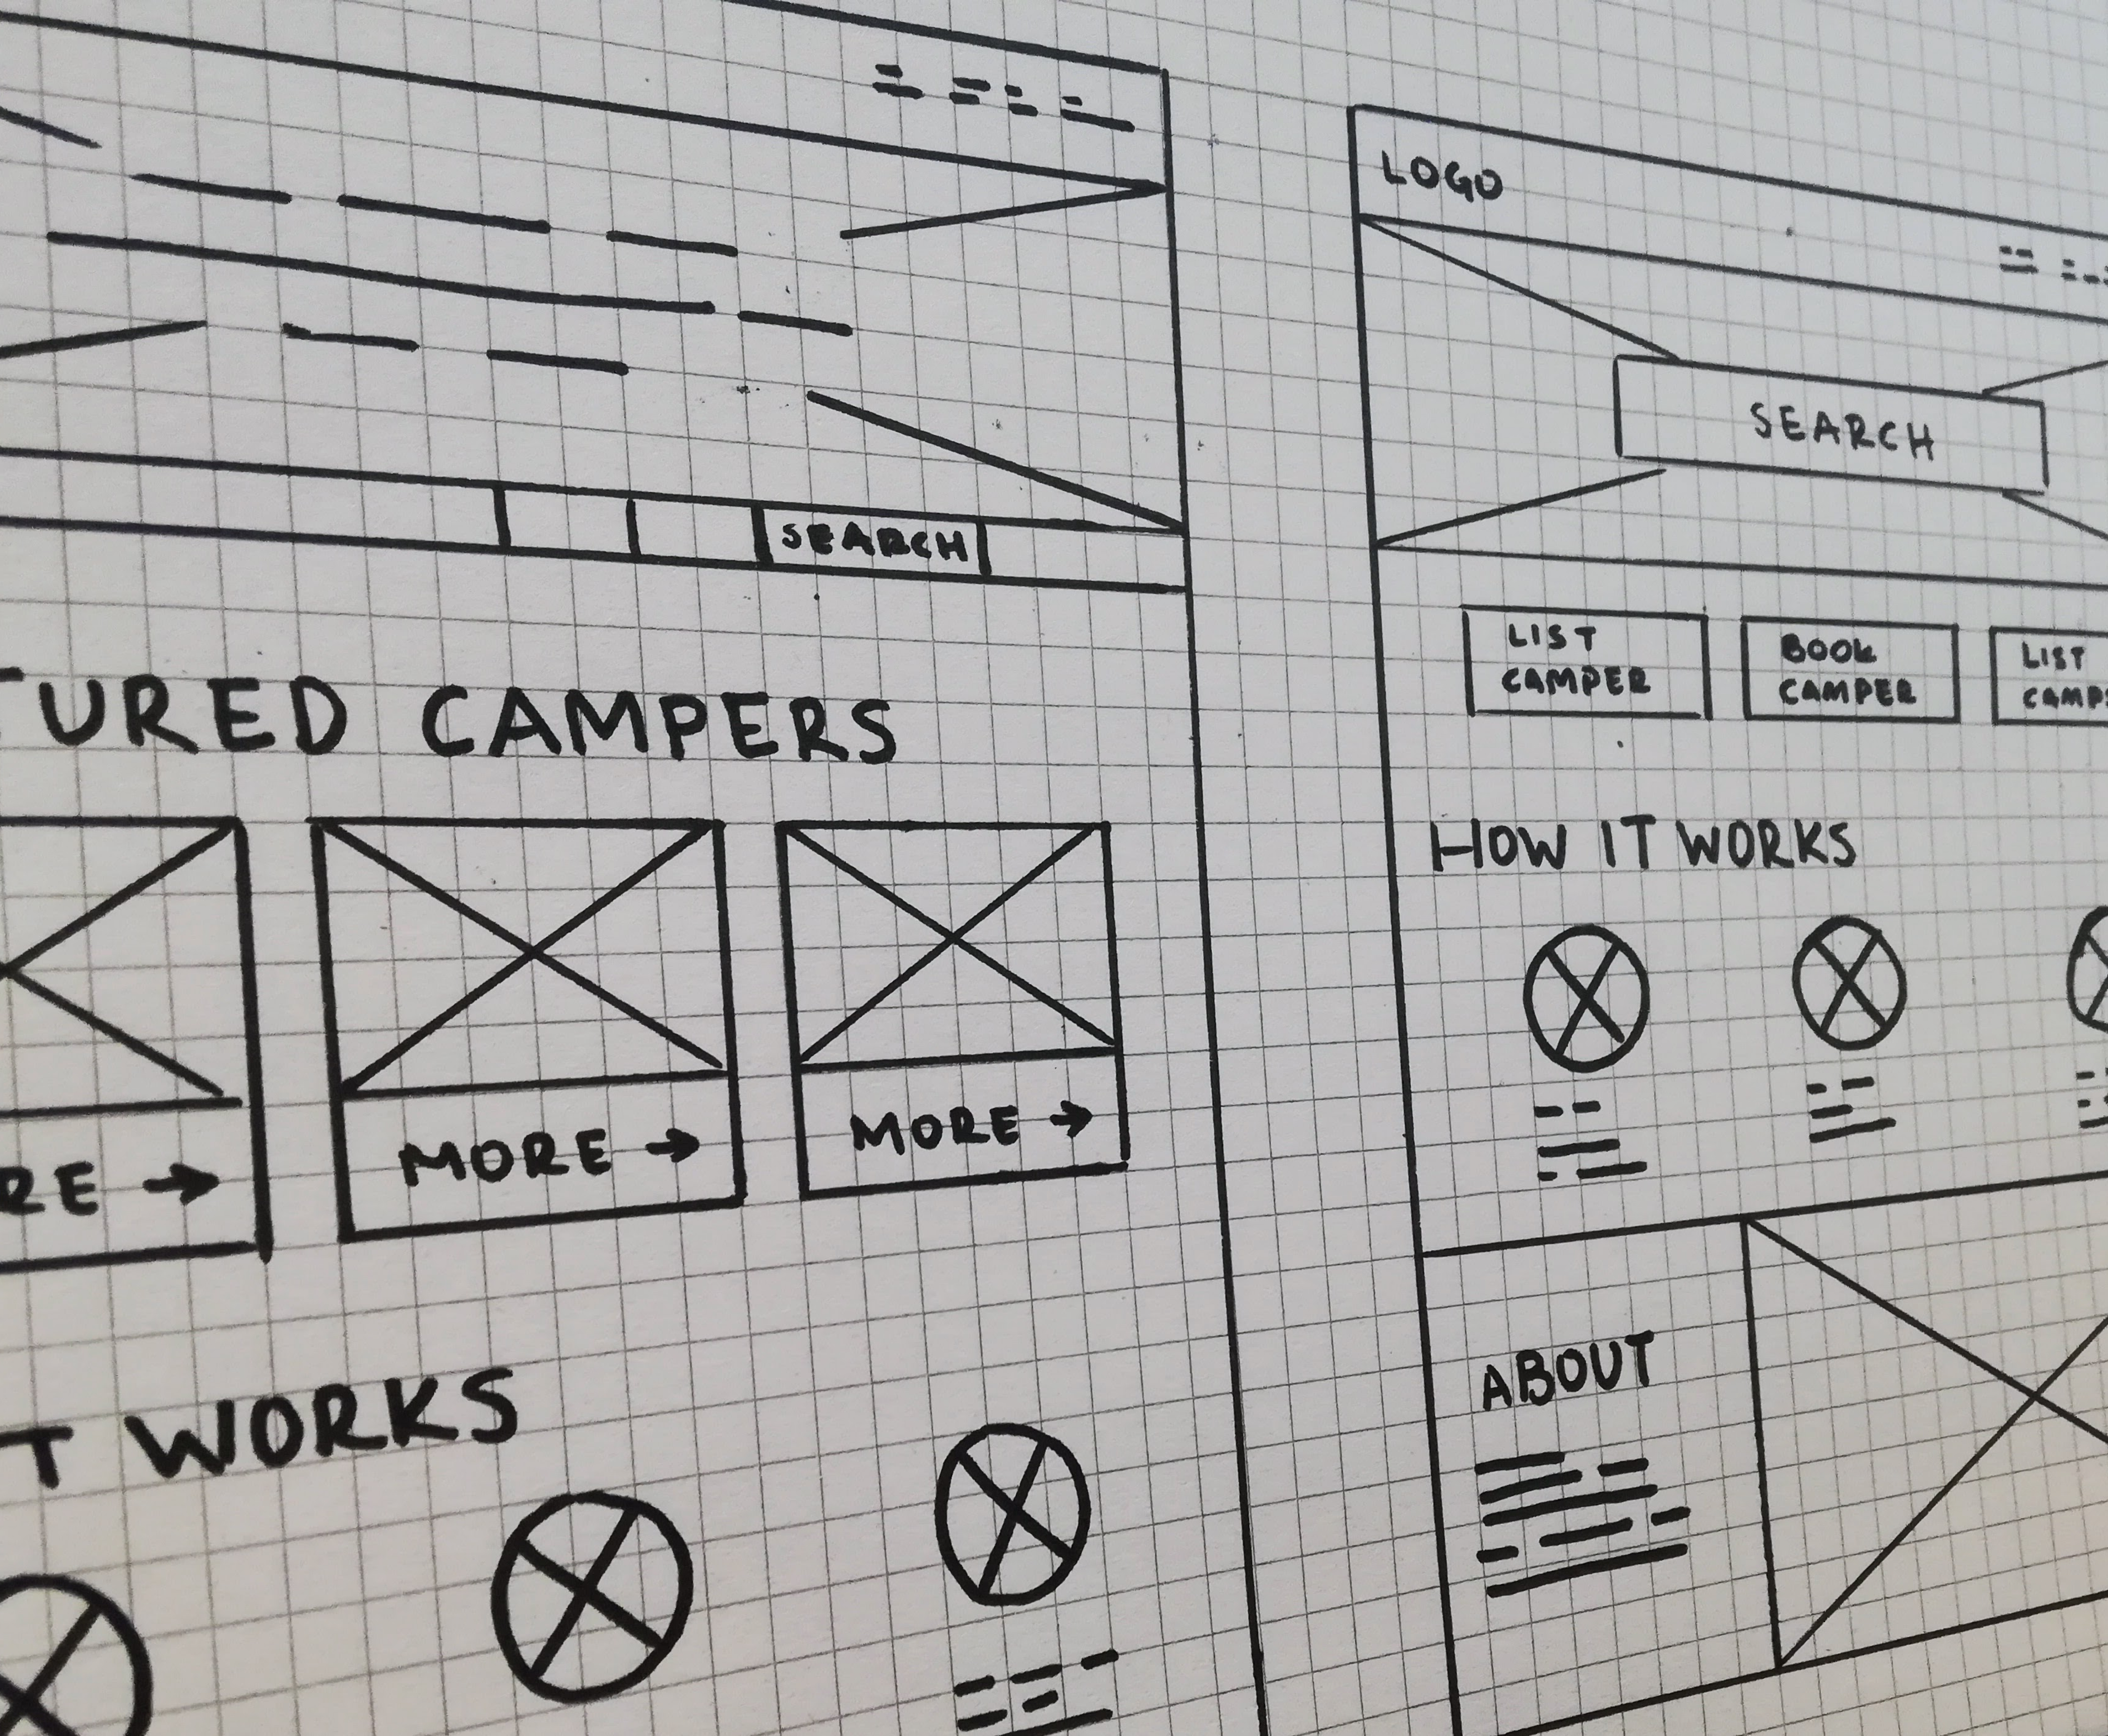 SEARCH
TURED CAMPERS
RE →
MORE →
MORE →
T WORKS
LOGO
SEARCH
LIST
CAMPER
BOOK
CAMPER
LIST
CAMP
HOW IT WORKS
ABOUT